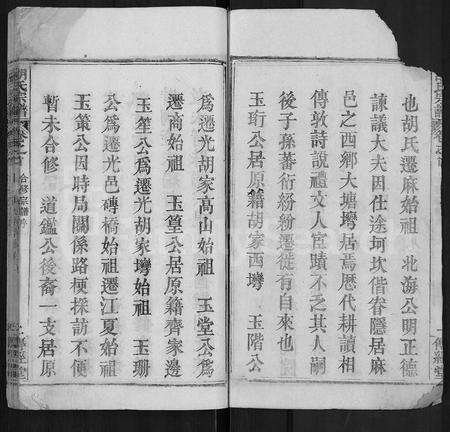 也胡氏遷麻始祖　北海公明正德
諫議大夫因仕途坎坷偕眷隱居麻
邑之西鄉大塘塆居焉歷代耕讀相
傳敦詩說禮文人宦蹟不乏其人嗣
後子孫蕃衍紛紛遷徙有自來也
玉珩公居原籍胡家西塆　玉階公
為遷光胡家高山始祖　玉堂公為
遷商始祖　玉篁公居原籍齊家邊
玉笙公為遷光胡家塆始祖　玉珊
公為遷光邑磚橋始祖遷江夏始祖
玉策公因時局關係路梗採訪不便
暫未合修　道鑑公後裔一支居原
胡氏宗譜